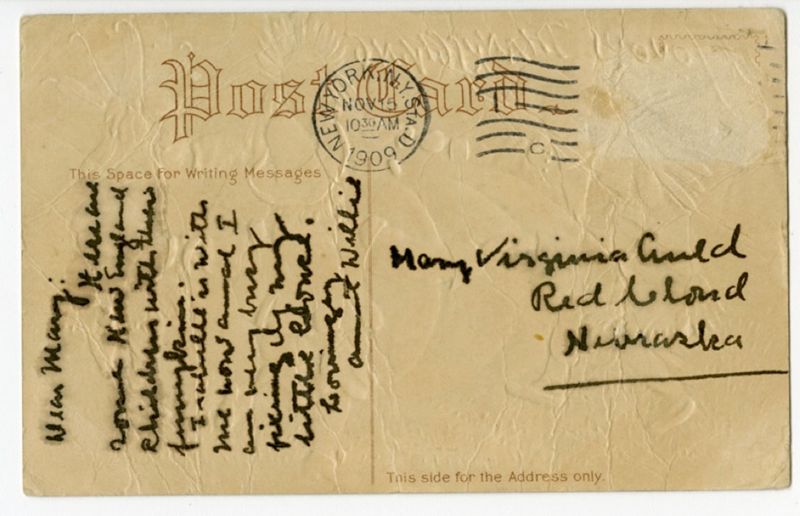 Post Card.
NEW YORK, N.Y. STA. D
NOV 15
10 30 AM
1909
C
This Space for Writing Messages
Dear Mary:
Here are
some New England
children with their
pumpkin.
Isabelle is with
me now and I
am very busy
fixing up my
little house.
Lovingly
Aunt Willie
Mary Virginia Auld
Red Cloud
Nebraska
This side for the Address only.